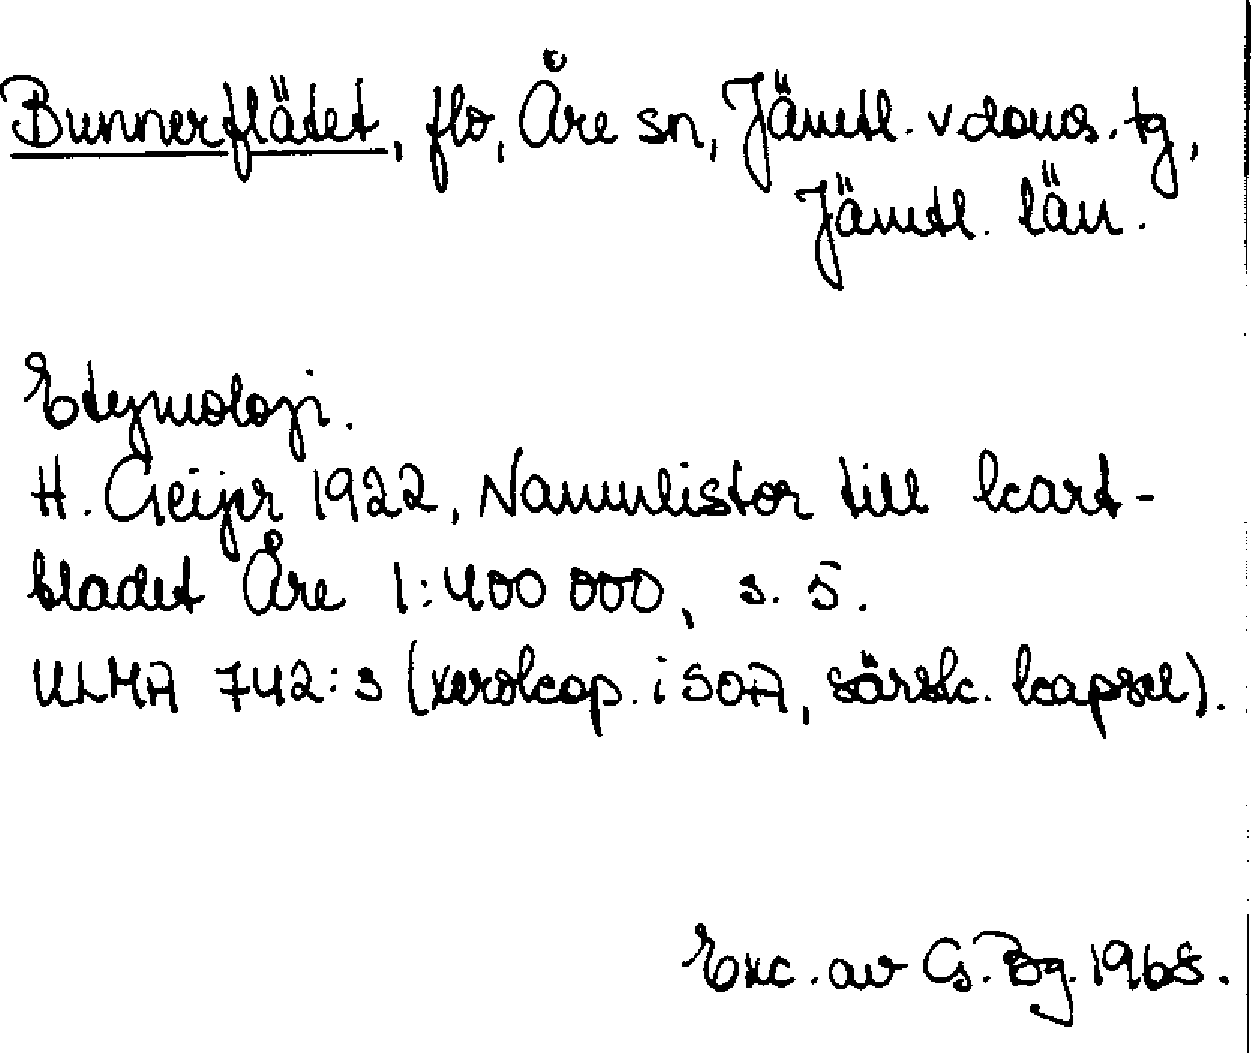 Bunnerflätet, flo, Åre sn, Jämtl. v. doms. tg,
Jämtl. län.
Etymologi.
H. Geijer 1922, Namnlistor till kart-
bladet Åre 1:400 000, s. 5.
ULMA 742:3 (xerokop. i SOA, särsk. kapsel).
Exc. av G. Bg. 1968.